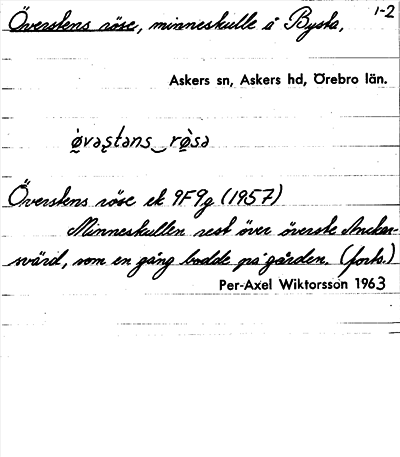 Överstens röse, minneskulle å Bysta, 1-2
Askers sn, Askers hd, Örebro län.
Överstens röse ek 9F9g (1957)
Minneskullen rest över överste Anckar-
svärd, som en gång bodde på gården. (forts.)
Per-Axel Wiktorsson 1963